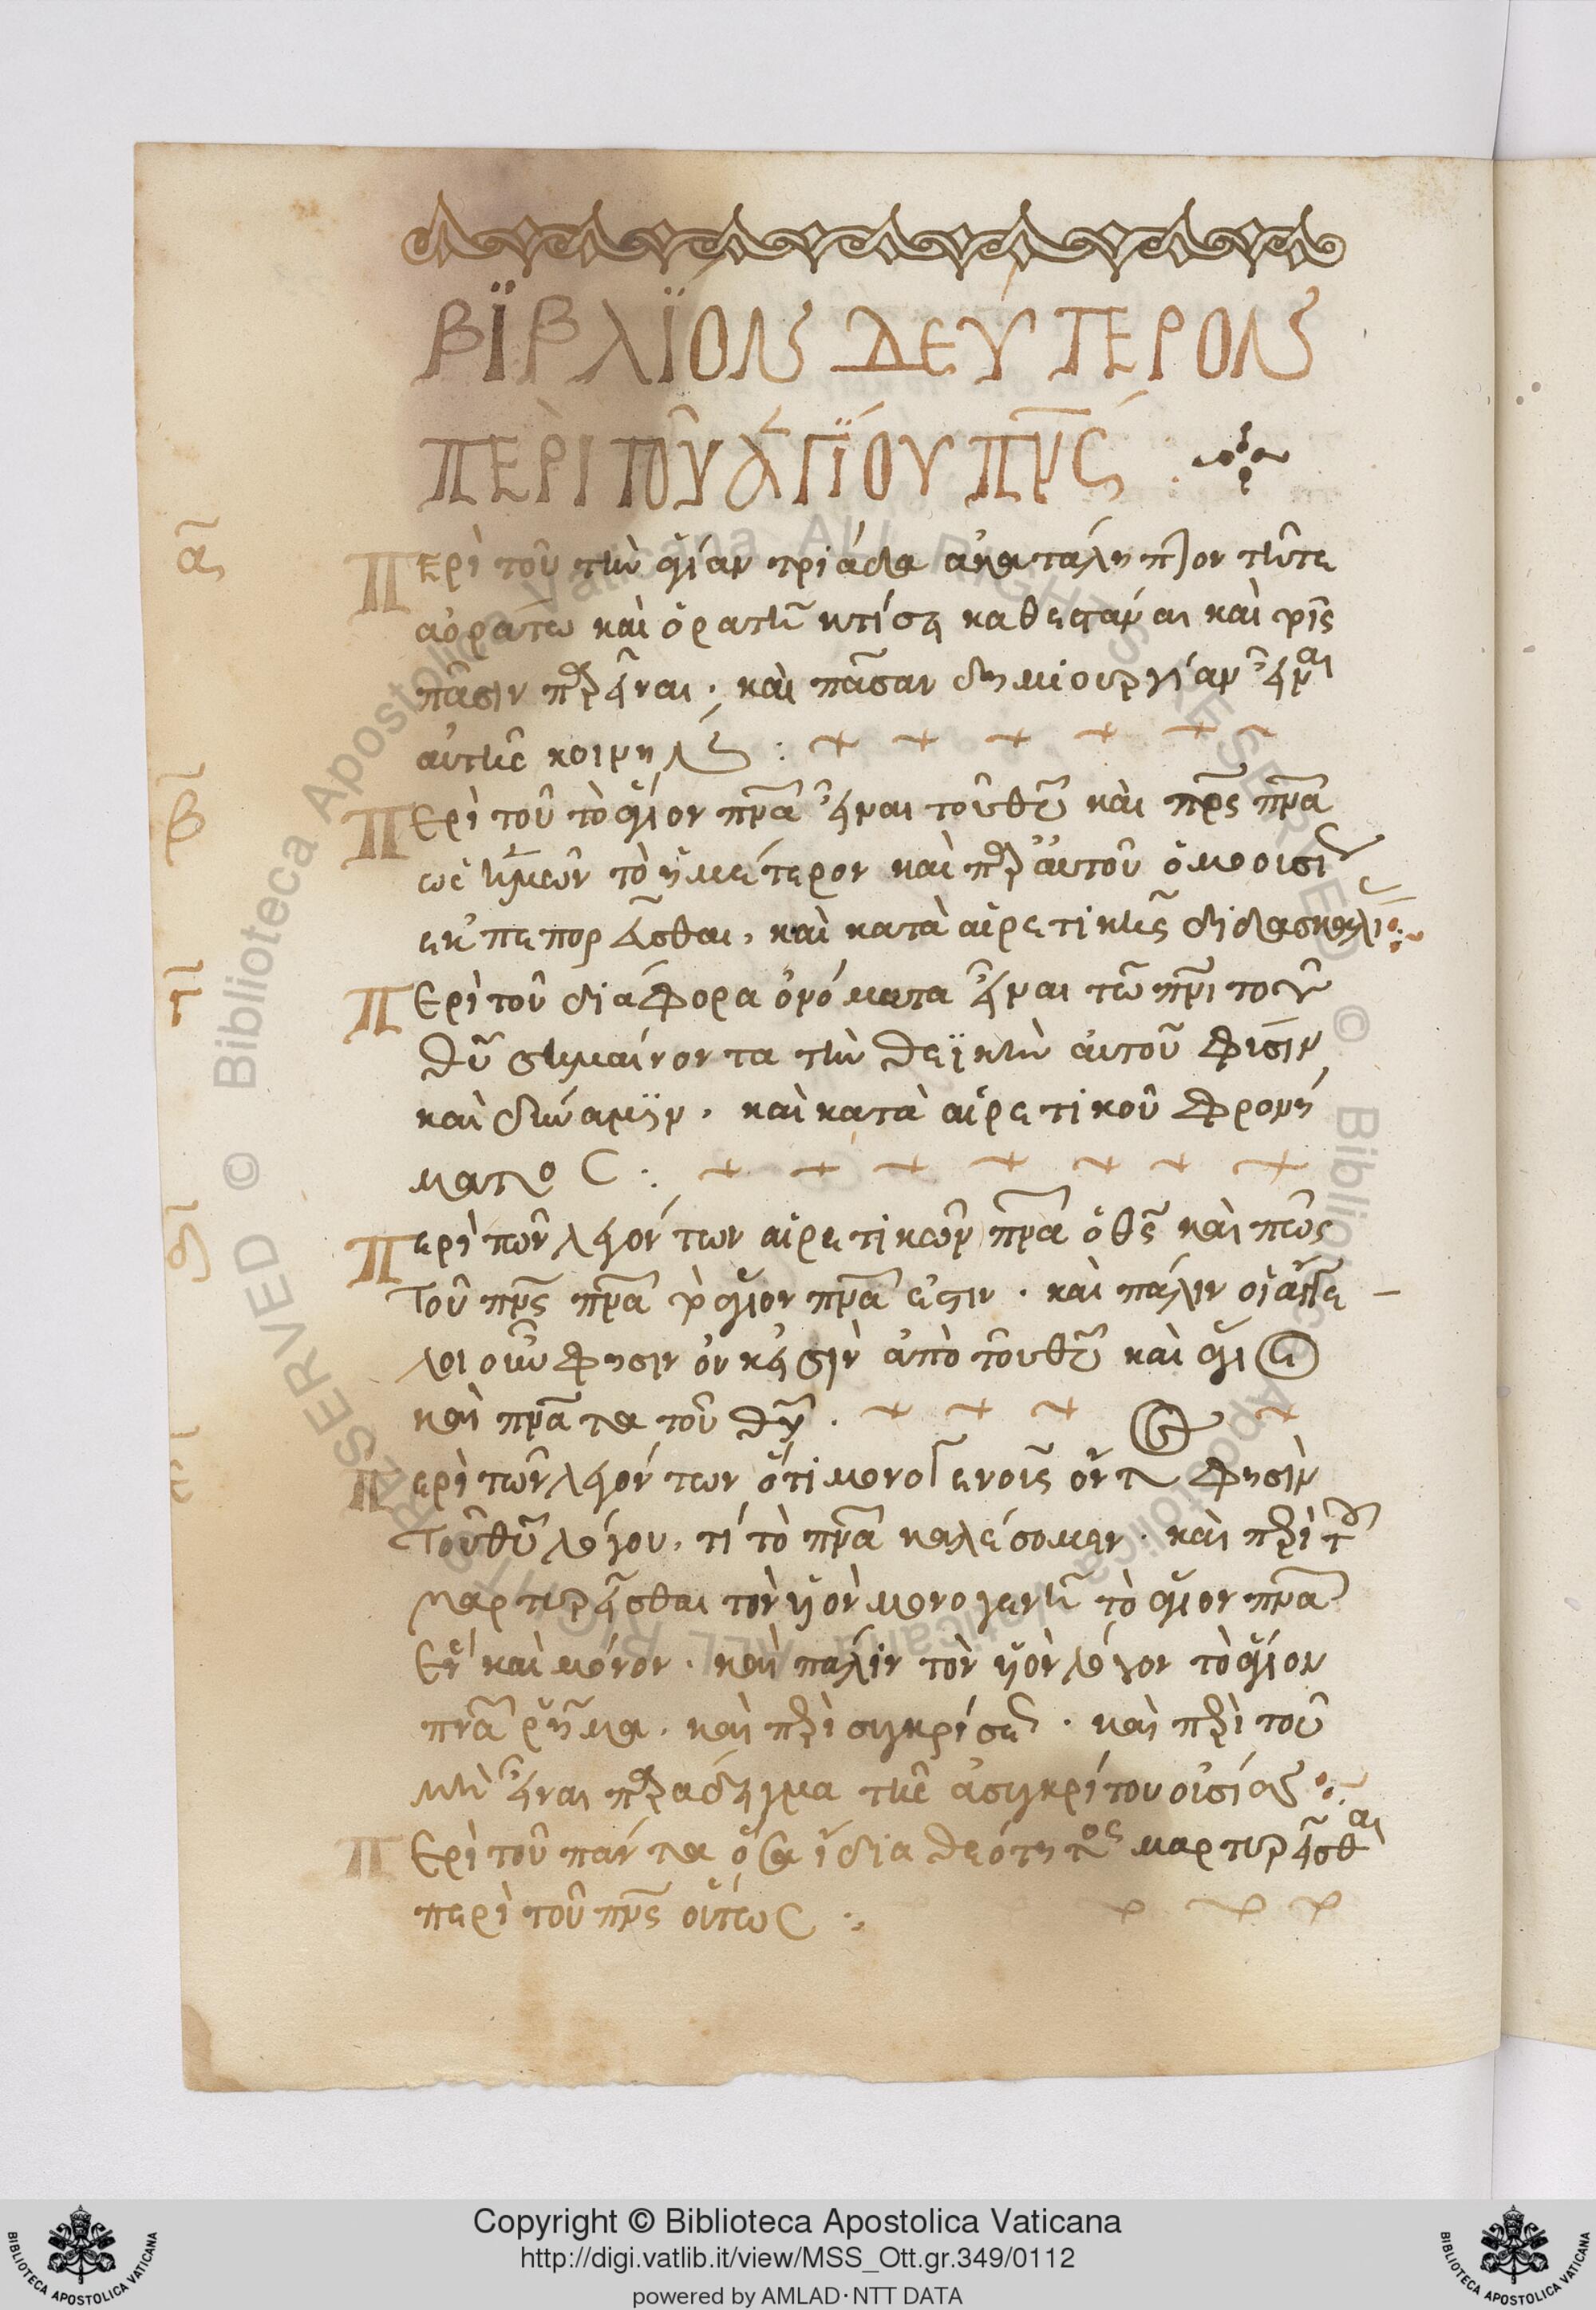 ΒΪΒΛΪΟΝ ΔΕΥΤΕΡΟΝ
ΠΕΡῚ ΤΟῦ ἉΓΪΟΥ ΠΝ̅Σ
α̅
Περὶ τοῦ τὴν ἁγίαν τριάδα ἀκατάληπτον τῆτε
ἀοράτω καὶ ὁρατῆ κτίσει καθεστάναι καὶ τοῖς
πᾶσιν παρεῖναι · καὶ πᾶσαν δημιουργίαν εἶναι
αὐτῆς κοινήν :
β̅
Περὶ τοῦ τὸ ἅγιον πν̅α εἶναι τοῦ θυ̅ καὶ πρ̅ς πν̅α
ὡς ἡμῶν τὸ ἡμέτερον καὶ παρ' αὐτοῦ ὁμοουσι
εκπεπορεῦσθαι, καὶ κατὰ αἱρετικῆς διδασκαλι
γ̅
Περὶ τοῦ διάφορα ὀνόματα εἶναι τῶ πν̅ι τοῦ
θυ̅ σημαίνοντα τὴν θεϊκὴν αὐτοῦ φύσιν
καὶ δύναμιν, καὶ κατὰ αἱρετικοῦ φρονή
ματος :
δ̅
Περὶ τῶν λεγόντων αἱρετικῶν πν̅α ὁ θς̅ καὶ πῶς
τοῦ πν̅ς πν̅α τὸ ἅγιον πν̅α ἐστιν · καὶ πάλιν οἱ ἄγγε
λοι οὖν φησιν οὐκ εἰσὶν ἀπὸ τοῦ θυ̅ καὶ ἅγια
καὶ πν̅ατα τοῦ θυ̅ ·
ε̅
Περὶ τῶν λεγόντων ὅτι μονογενοῦς ὄντος φησὶν
τοῦ θυ̅ λόγου, τί τὸ πν̅α καλέσομεν · καὶ περὶ τοῦ
μαρτυρεῖσθαι τὸν υἱὸν μονογενῆ τὸ ἅγιον πν̅α
ἓν καὶ μόνον · καὶ πάλιν τὸν υἱὸν λόγον τὸ ἅγιον
πν̅α ῥῆμα, καὶ περὶ συγκρίσεως · καὶ περὶ τοῦ
μὴ εἶναι παράδειγμα τῆς ἀσυγκρίτου οὐσίας
Περὶ τοῦ πάντα ὅσα ἴδια θεότητος μαρτυρεῖσθαι
περὶ τοῦ πν̅ς οὕτως :
Copyright © Biblioteca Apostolica Vaticana
http://digi.vatlib.it/view/MSS_Ott.gr.349/0112
powered by AMLAD·NTT DATA